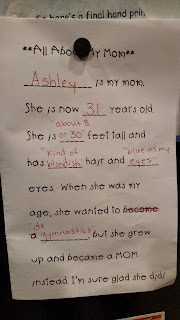 So here's a final hand prin
**All About My Mom**
Ashley is my mom.
She is now 31 years old.
"about 8
She is or 30" feet tall and
"Kind of "blue as my
has blondish" hair and eyes"
eyes. When she was my
age, she wanted to become
"do
a gymnastics" but she grew
up and became a MOM
instead. I'm sure glad she did!